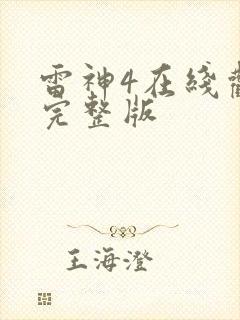 雷神4在线
完整版
王海澄